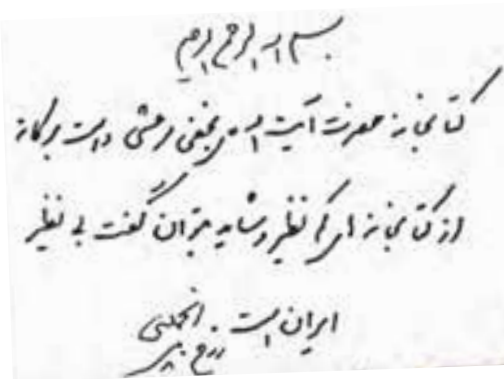 بسم الله الرحمن الرحیم
کتابخانه حضرت آیت الله نجفی مرعشی دامت برکاته
از کتابخانه‌های کم نظیر و شاید بتوان گفت بی نظیر
ایران است